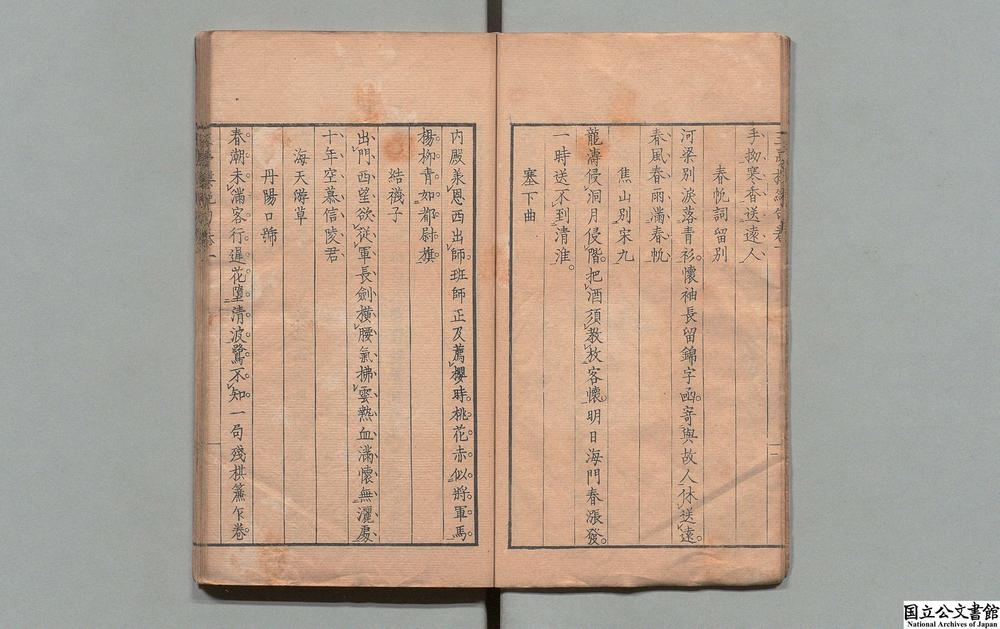 手拗寒香送遠人
春帆詞留別
河梁別淚落青衫懷袖長留錦字函寄與故人休送遠
春風春雨滿春帆
焦山別宋九
龍濤侵洞月侵階把酒須教放客懷明日海門春漲發
一時送不到清淮
塞下曲
内殿承恩西出師班師正及薦櫻時桃花赤似將軍馬
楊柳青如都尉旗
結襪子
出門西望欲從軍長劍橫腰氣拂雲熱血滿懷無灑處
十年空慕信陵君
海天游草
丹陽口號
春潮未滿客行遲花墮清波鷺不知一局殘棋簾乍卷
国立公文書館
National Archives of Japan